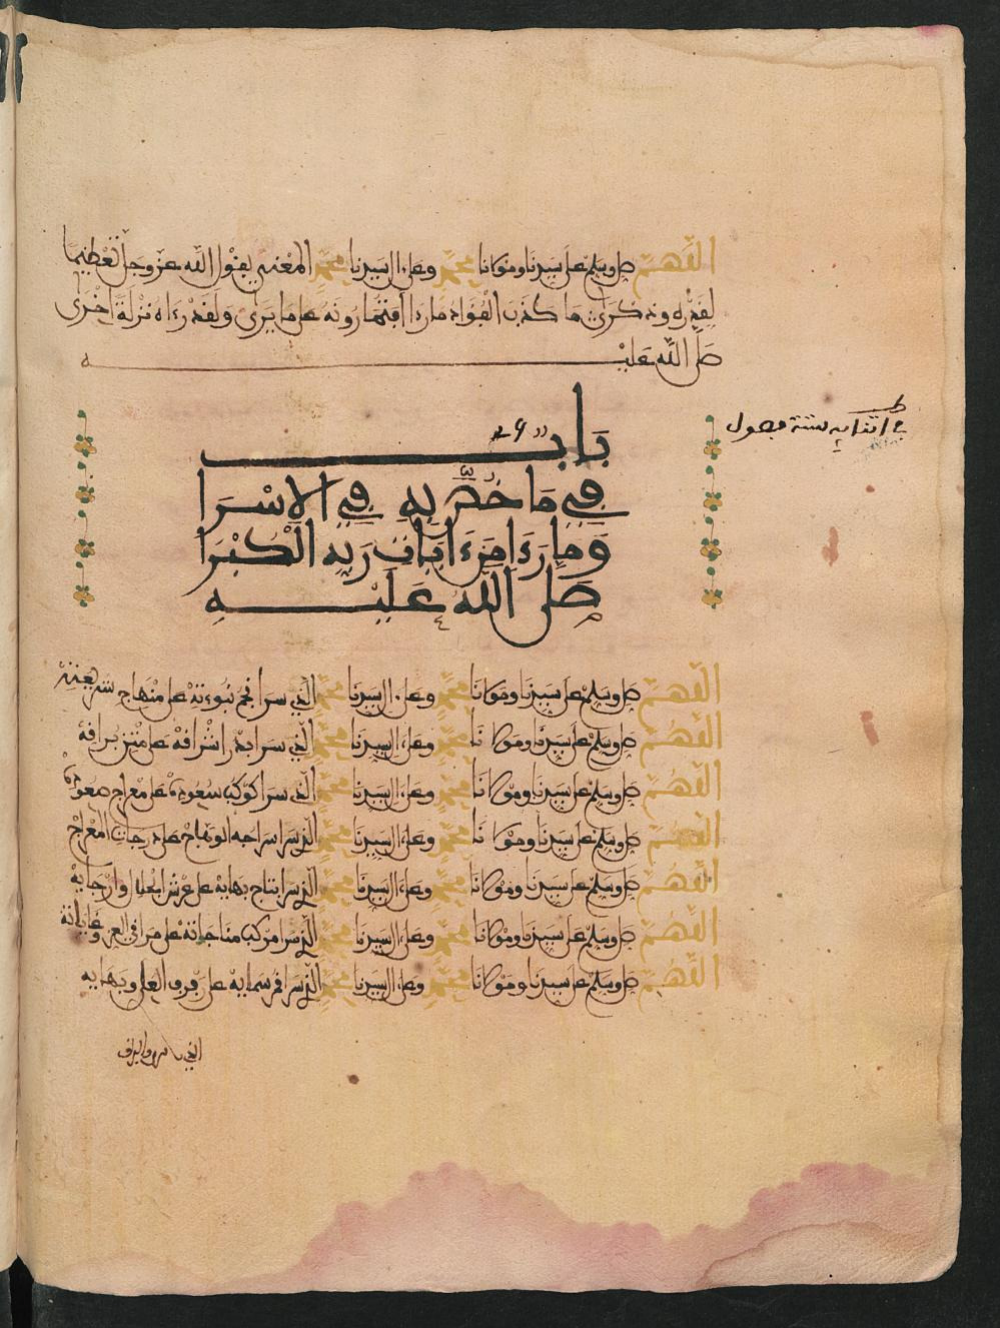 اللهم صل وسلم على سيدنا ومولانا محمد وعلى ءال سيدنا محمد المعني بقول الله عز وجل تعظيما
لقدره وذكرى ما كذب الفؤاد ما رءا أفتمارونه على ما يرى ولقد رءاه نزلة أخرى
صلى الله عليه
باب
في ما خص به في الاسرا
وما رءا من ءايات ربه الكبرا
صلى الله عليه
اللهم صل وسلم على سيدنا ومولانا محمد وعلى ءال سيدنا محمد الذي سرا نجم نبوءته على منهاج شريعته
اللهم صل وسلم على سيدنا ومولانا محمد وعلى ءال سيدنا محمد الذي سرا بدر اشرافه على متن برافه
اللهم صل وسلم على سيدنا ومولانا محمد وعلى ءال سيدنا محمد الذي سرا كوكب سعوده على معراج صعوده
اللهم صل وسلم على سيدنا ومولانا محمد وعلى ءال سيدنا محمد الذي سرا سراجه الوهاج على درجات المعراج
اللهم صل وسلم على سيدنا ومولانا محمد وعلى ءال سيدنا محمد الذي سرا بتاج بهايه على عرش العلى وارجايه
اللهم صل وسلم على سيدنا ومولانا محمد وعلى ءال سيدنا محمد الذي سرا مركب مناجاته على مرافي العز وغاياته
اللهم صل وسلم على سيدنا ومولانا محمد وعلى ءال سيدنا محمد الذي سرا قمر سمايه على العلى وبهايه